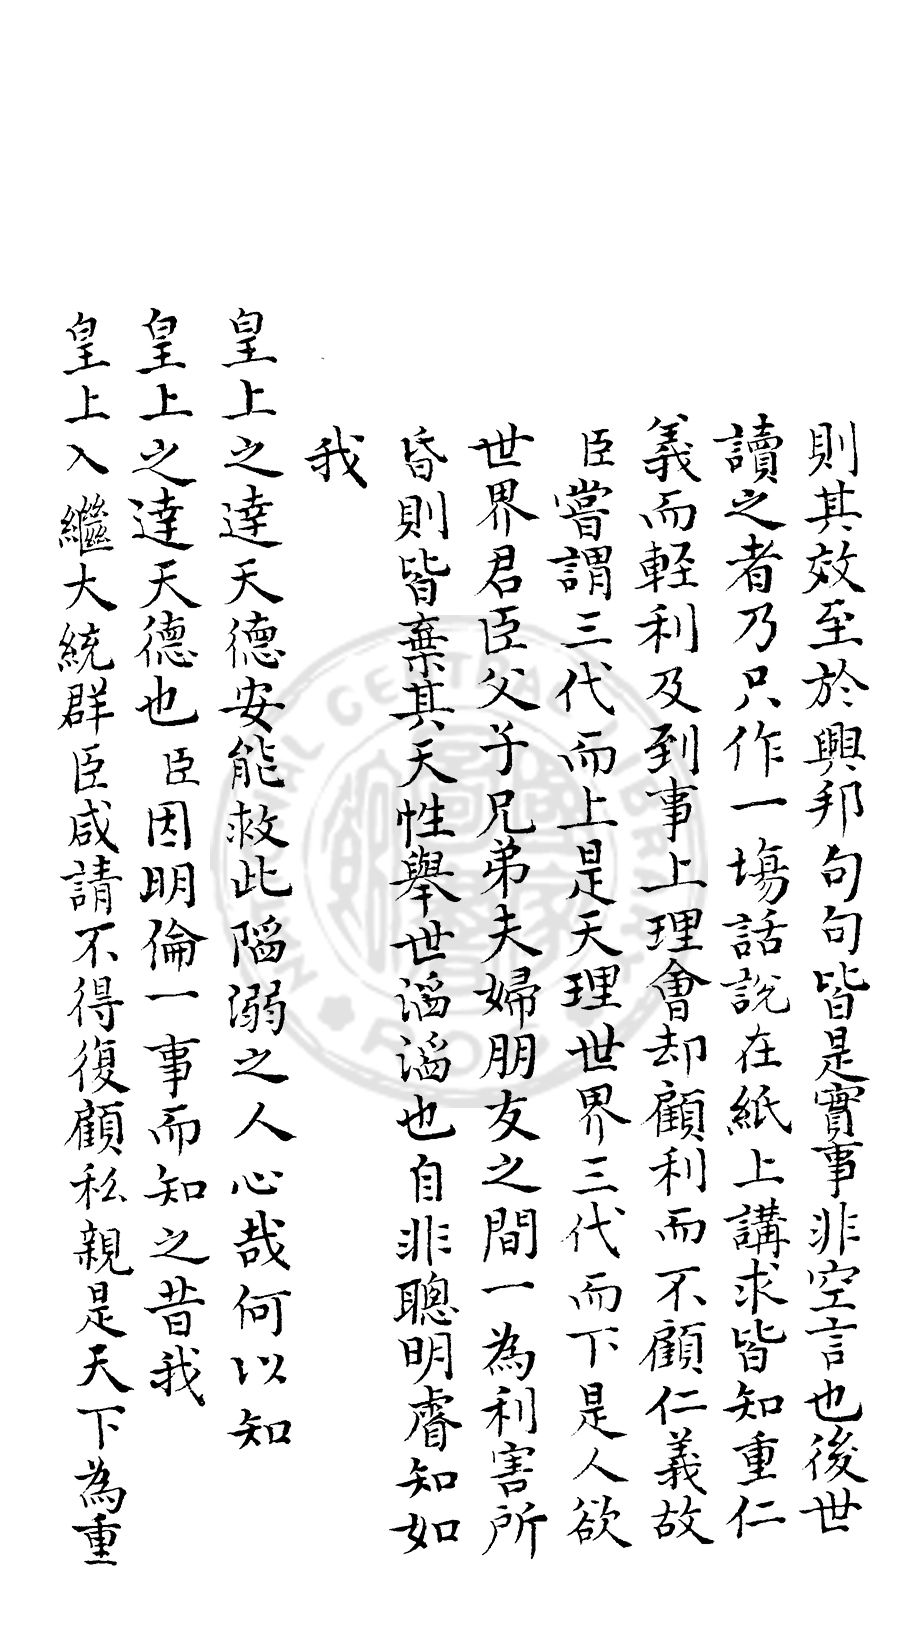 則其效至於興邦句句皆是實事非空言也後世
讀之者乃只作一場話說在紙上講求皆知重仁
義而輕利及到事上理會却顧利而不顧仁義故
臣嘗謂三代而上是天理世界三代而下是人欲
世界君臣父子兄弟夫婦朋友之間一為利害所
昏則皆棄其天性舉世滔滔也自非聰明睿知如
我
皇上之達天德安能救此陷溺之人心哉何以知
皇上之達天德也臣因明倫一事而知之昔我
皇上入繼大統群臣咸請不得復顧私親是天下為重
NATIONAL CENTRAL LIBRARY